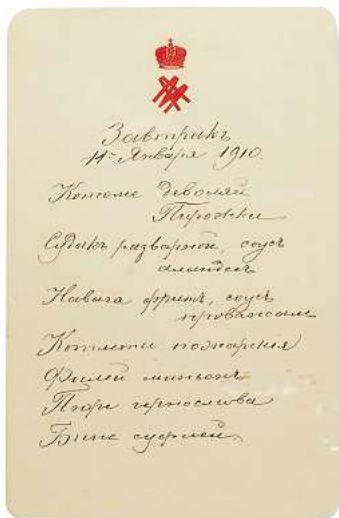 Завтракъ
11го Января 1910.
Консоме деволяй
Пирожки
Судакъ разварной, соусъ
аландесъ
Навага фритъ, соусъ
провансаль
Котлеты пожарския
Филей миньонъ
Пюре чернослива
Бине суфлей